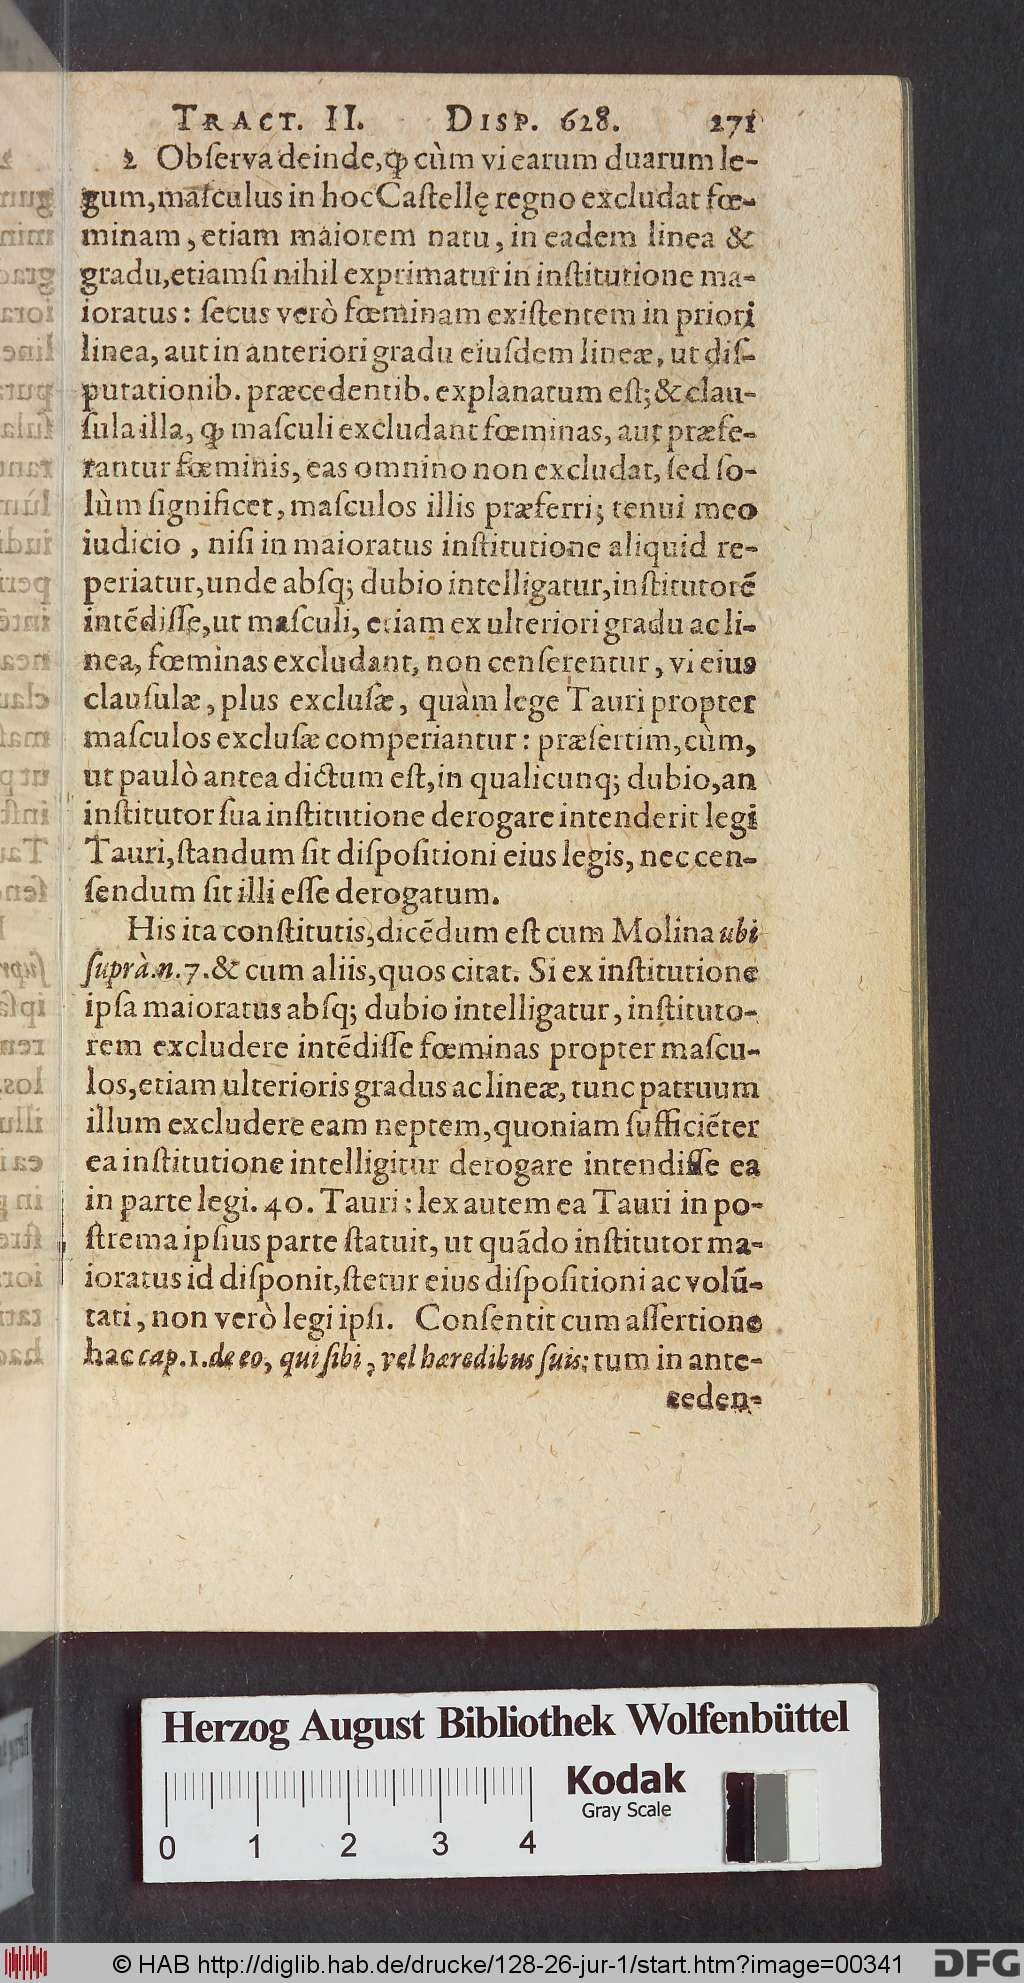 TRACT. II. DISP. 628. 271
2 Obſerva deinde, ꝙ cùm vi earum duarum le-
gum, maſculus in hoc Caſtellę regno excludat fœ-
minam, etiam maiorem natu, in eadem linea &
gradu, etiamſi nihil exprimatur in inſtitutione ma-
ioratus: ſecus verò fœminam exiſtentem in priori
linea, aut in anteriori gradu eiuſdem lineæ, ut diſ-
putationib. præcedentib. explanatum eſt; & clau-
ſula illa, ꝙ maſculi excludant fœminas, aut præfe-
rantur fœminis, eas omnino non excludat, ſed ſo-
lùm ſignificet, maſculos illis præferri; tenui meo
iudicio, niſi in maioratus inſtitutione aliquid re-
periatur, unde abſq; dubio intelligatur, inſtitutorē
intēdiſſe, ut maſculi, etiam ex ulteriori gradu ac li-
nea, fœminas excludant, non cenſerentur, vi eius
clauſulæ, plus excluſæ, quàm lege Tauri propter
maſculos excluſæ comperiantur: præſertim, cùm,
ut paulò antea dictum eſt, in qualicunq; dubio, an
inſtitutor ſua inſtitutione derogare intenderit legi
Tauri, ſtandum ſit diſpoſitioni eius legis, nec cen-
ſendum ſit illi eſſe derogatum.
His ita conſtitutis, dicēdum eſt cum Molina ubi
ſuprà. n. 7. & cum aliis, quos citat. Si ex inſtitutione
ipſa maioratus abſq; dubio intelligatur, inſtituto-
rem excludere intēdiſſe fœminas propter maſcu-
los, etiam ulterioris gradus ac lineæ, tunc patruum
illum excludere eam neptem, quoniam ſufficiēter
ea inſtitutione intelligitur derogare intendiſſe ea
in parte legi. 40. Tauri: lex autem ea Tauri in po-
ſtrema ipſius parte ſtatuit, ut quādo inſtitutor ma-
ioratus id diſponit, ſtetur eius diſpoſitioni ac volū-
tati, non verò legi ipſi. Conſentit cum aſſertione
hac cap. 1. de eo, qui ſibi, vel hæredibus ſuis: tum in ante-
ceden-
Herzog August Bibliothek Wolfenbüttel
Kodak
Gray Scale
0 1 2 3 4
© HAB http://diglib.hab.de/drucke/128-26-jur-1/start.htm?image=00341
DFG